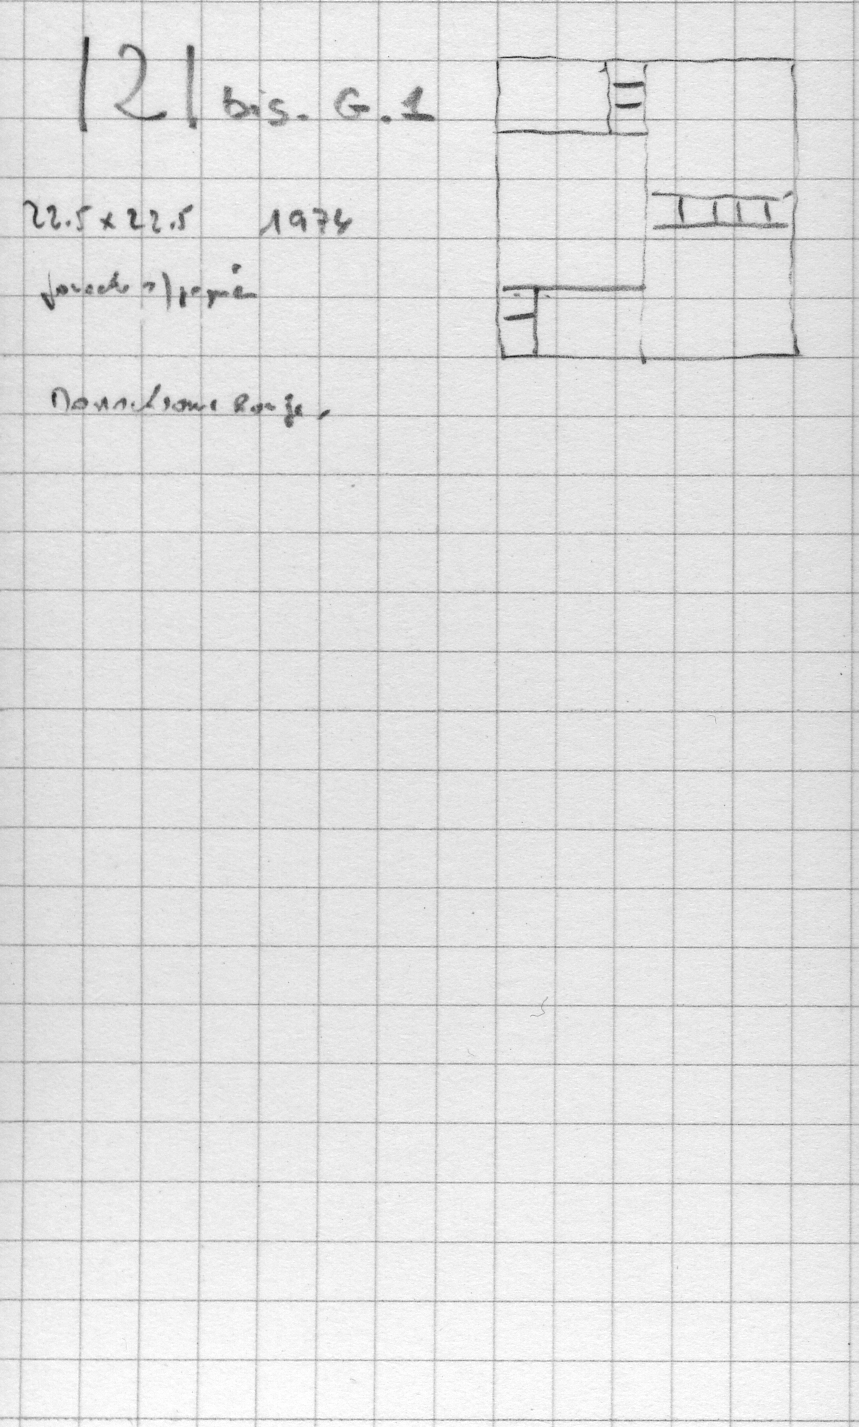 121 bis. G. 1
22.5 x 22.5 1974
gouache s/ papier
Monochrome Rouge.